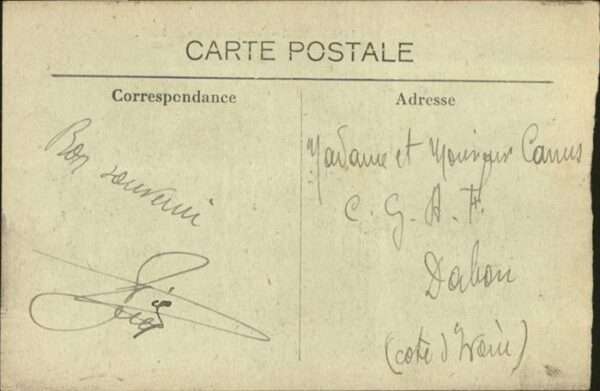 CARTE POSTALE
Correspondance
Bon souvenir
Adresse
Madame et Monsieur Camus
C. G. A. F.
Dabou
(cote d'Ivoire)